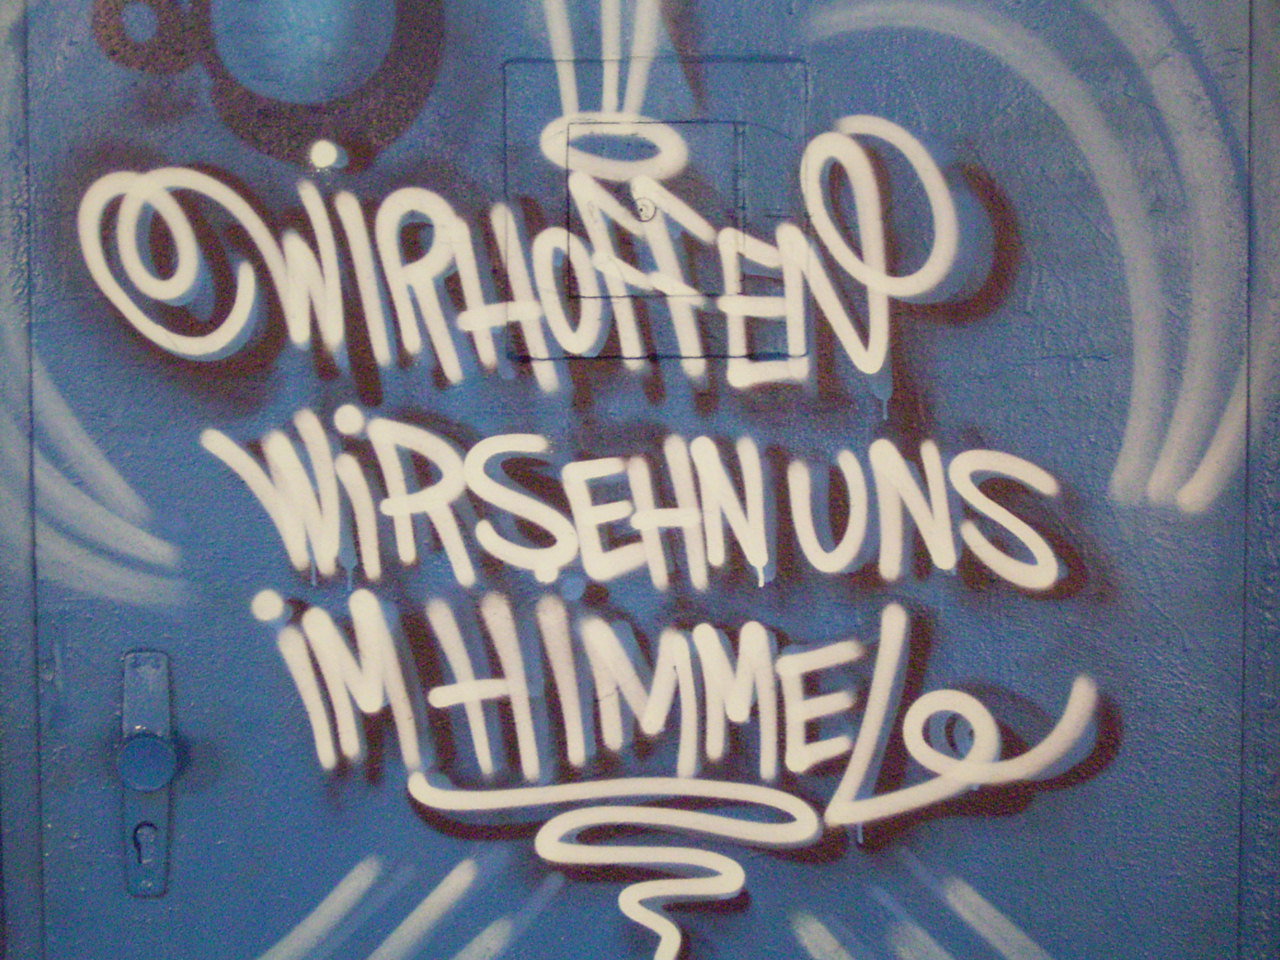 WIR HOFFEN
WiR SEHN UNS
iM HIMMEL